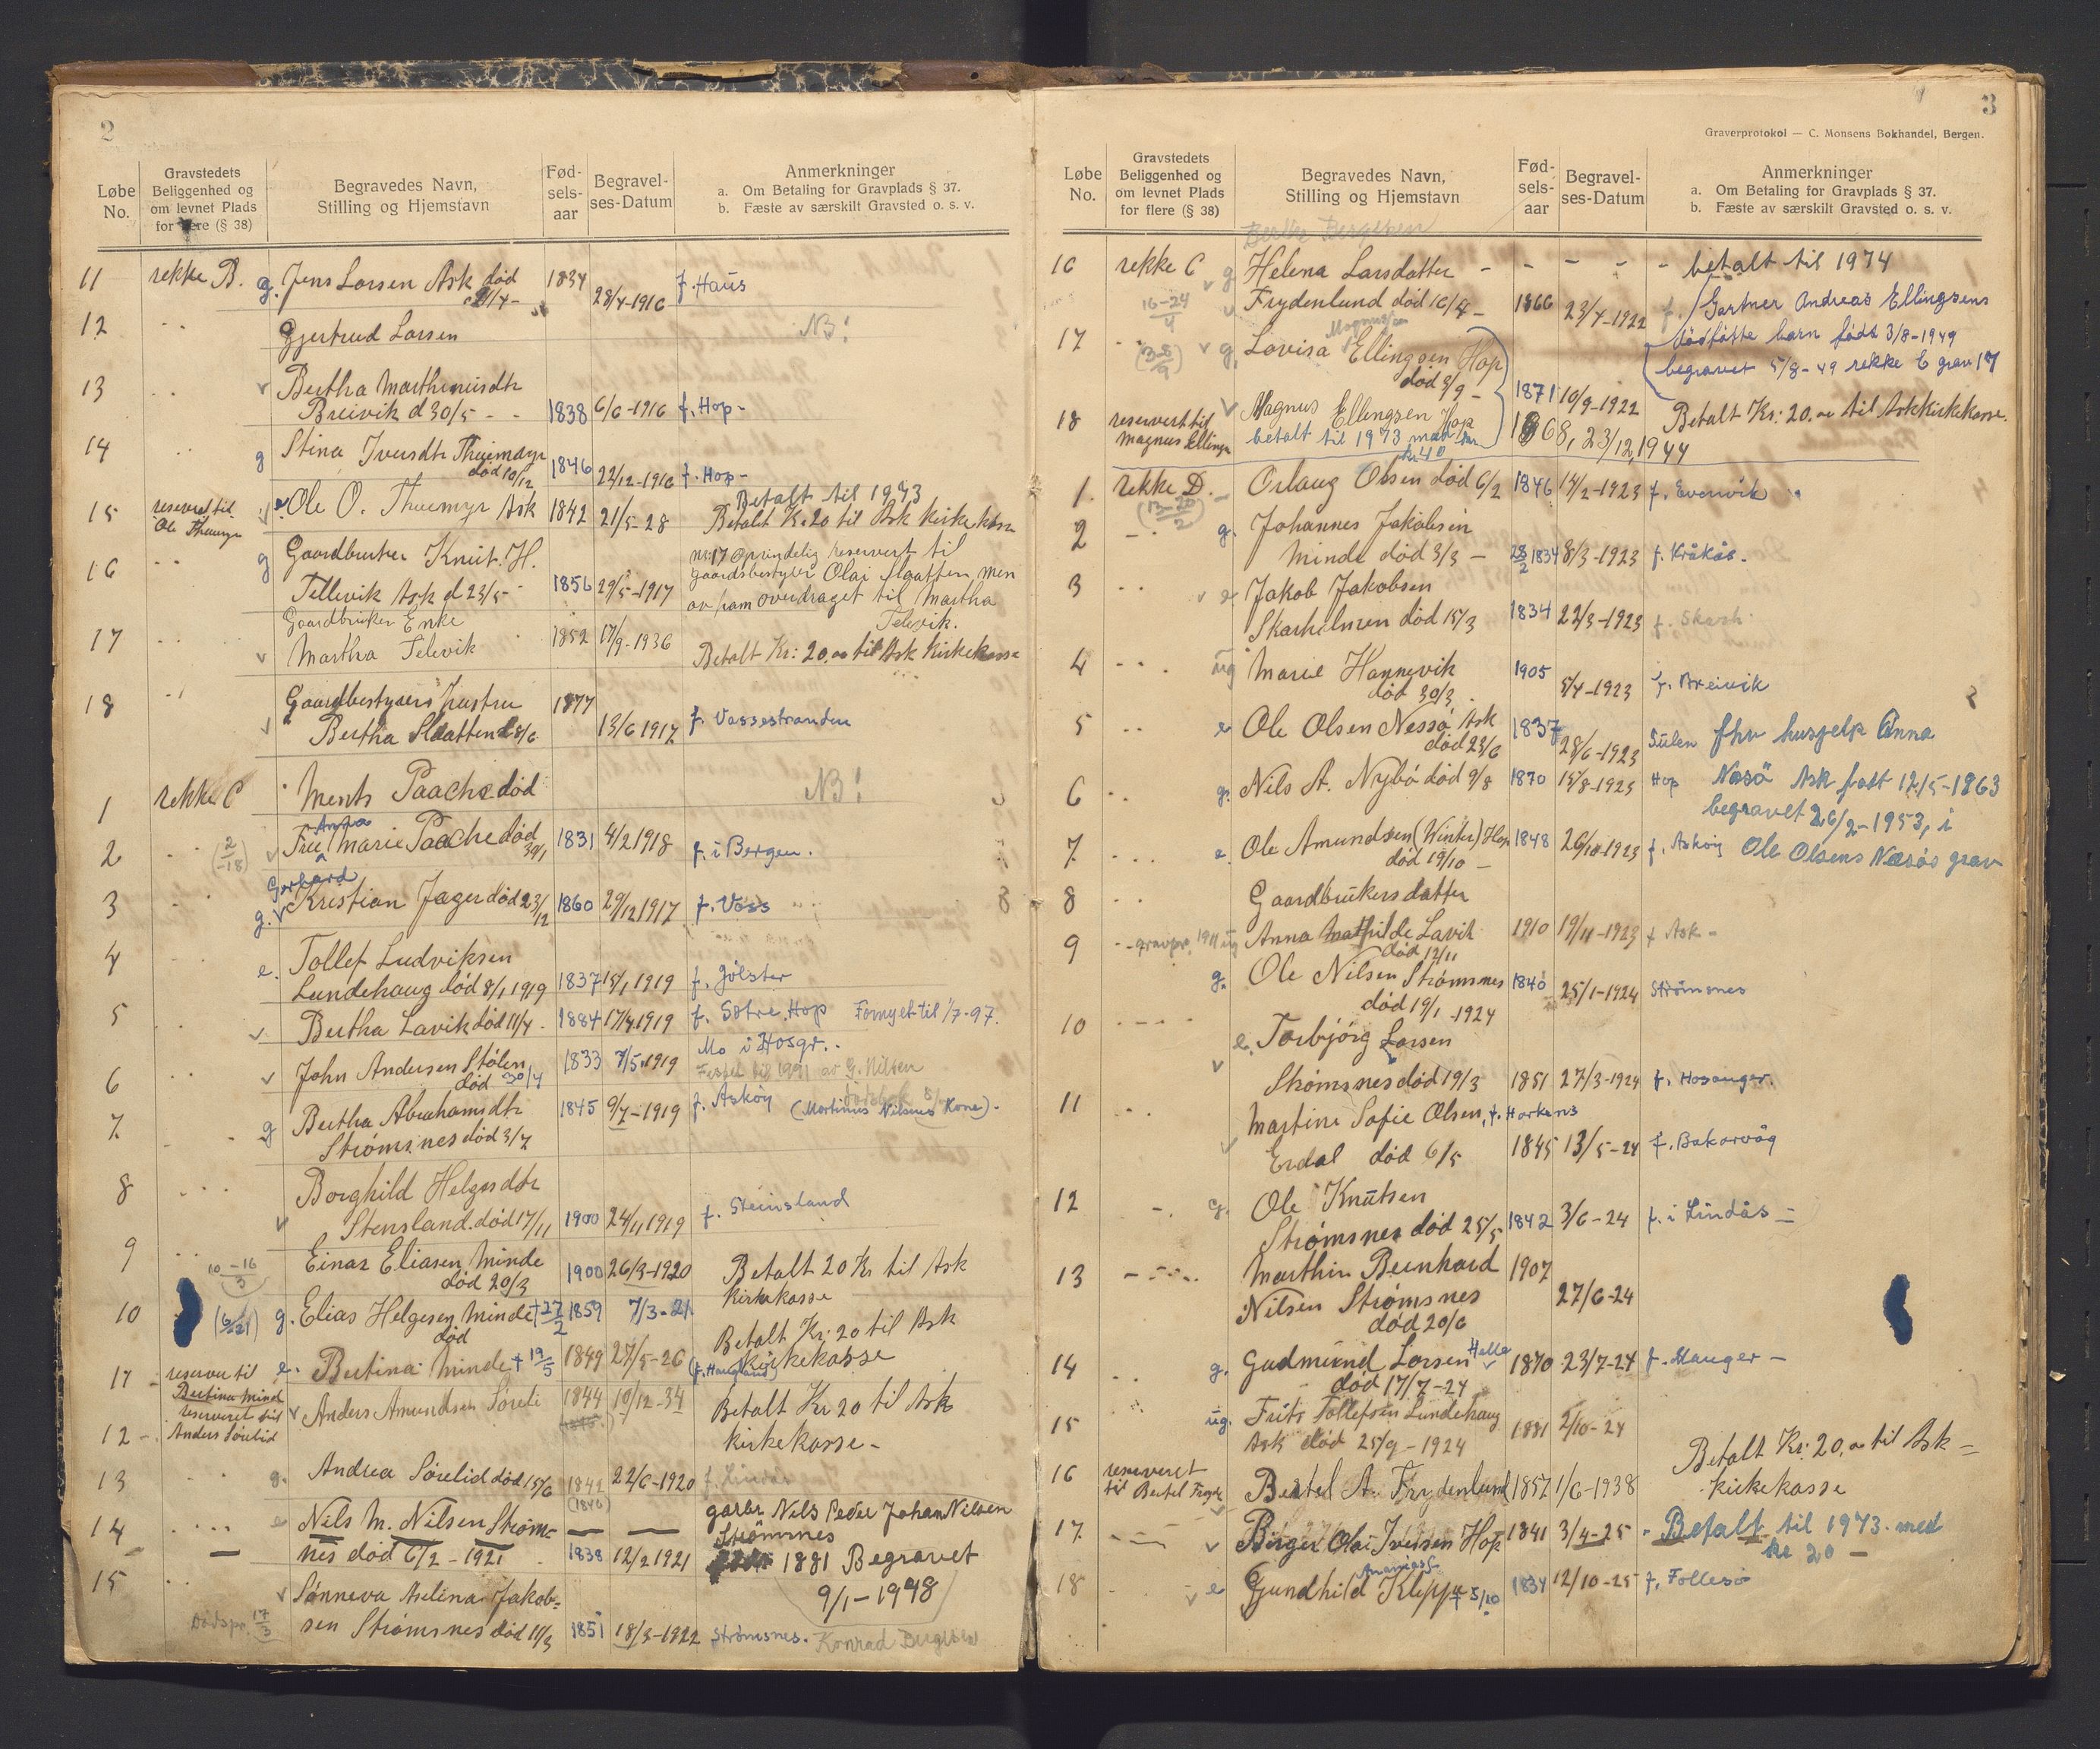 2
Løbe No.
Gravstedets Beliggenhed og om levnet Plads for flere (§ 38)
Begravedes Navn, Stilling og Hjemstavn
Fød-sels-aar
Begravel-ses-Datum
Anmerkninger
a. Om Betaling for Gravplads § 37.
b. Fæste av særskilt Gravsted o. s. v.
11 rekke B. g. Jens Larsen Ask død 21/4 - 1834 28/4-1916 f. Haus
12 - - Gjertrud Larsen NB!
13 - - v Bertha Marthinusdtr
Breivik d 30/5 - - 1838 6/6-1916 f. Hop -
14 - - g Stina Iversdtr Thuemyr
død 10/12 1846 22/12-1916 f. Hop -
Betalt til 1973
15 reservert til Ole Thuemyr v e Ole O. Thuemyr Ask 1842 21/5-28 Betalt Kr 20 til Ask Kirkekasse
16 - - g Gaardbruker Knut. H.
Tellevik Ask d 23/5 - 1856 29/5-1917
nr. 17 oprindelig reservert til
gaardsbestyrer Olai Slaatten, men
av ham overdraget til Martha
Televik.
17 - - Gaardbruker Enke
v Martha Televik 1852 17/9-1936 Betalt Kr: 20.00 til Ask Kirkekasse
18 - - Gaardbestyrers hustru
v Bertha Slaatten d 8/6 1877 13/6 1917 f. Vossestranden
1 rekke C Ments Paache død NB!
2 - - (2/-18) v Fru Anna Marie Paache død 30/1 1831 4/2 1918 f. i Bergen.
3 - - g. v Gerhard Kristian Jager død 23/12 1860 29/12 1917 f. Voss
4 - - e. Tollef Ludviksen
Lundehaug død 8/1 1919 1837 15/1 1919 f. Jölster
5 - - v Bertha Lavik død 11/4 - 1884 17/4 1919 f. Sotre. Hop Fornyet til 1/7-97.
6 v John Andersen Stølen
død 30/4 1833 7/5 1919 Mo i Hosgr. -
Festet til 1991 av G. Nilsen
7 - - g Bertha Abrahamsdtr
Strömsnes død 3/7 1845 9/7-1919 f. Asköy (Martinus Nilsens Kone) -
8 - - Borghild Helgesdtr
v Stensland. død 17/11 1900 24/11 1919 f. Steinsland
9 - - 10-16/3 Einar Eliasen Minde
død 20/3 1900 26/3-1920 Betalt 20 Kr til Ask
Kirkekasse
10 (6/3 21) g. Elias Helgesen Minde + 27/2 1859 7/3-21
død
Betalt Kr: 20 til Ask
Kirkekasse
11 - reserver til Bertina Minde e. Bertina Minde + 19/5 1849 27/5-26 (f. Haugland)
12 - reserveret til Anders Sørelid v Anders Amundsen Søreli 1844 10/12-34 Betalt Kr 20 til Ask
Kirkekasse -
13 - - g. Andrea Sørelid død 15/6 1842 (1840) 22/6-1920 f. Lindås
14 - - - - e Nils M. Nilsen Strøm-
nes død 6/2 - 1921 1838 12/2 1921
garbr. Nils Peder Johan Nilsen
Strömsnes
1881 Begravet
9/1-1948
15 - - v Sønneva Aselina Jakob=
Dødspr. 17/3 sen Strömsnes død 11/3 1851 18/3-1922 Strömsnes. Konrad Birgitsen
3
Graverprotokol — C. Monsens Bokhandel, Bergen.
Løbe No.
Gravstedets Beliggenhed og om levnet Plads for flere (§ 38)
Begravedes Navn, Stilling og Hjemstavn
Fød-sels-aar
Begravel-ses-Datum
Anmerkninger
a. Om Betaling for Gravplads § 37.
b. Fæste av særskilt Gravsted o. s. v.
Berthe Bergesen
16 rekke C v g Helena Larsdatter - - - - - betalt til 1974
16-24/4 v Frydenlund død 16/4 - 1866 23/4-1922 f.
Gartner Andreas Ellingsens
dödfötte barn födt 3/8-1949
begravet 5/8-49 rekke C grav 17
17 - - (3-8/9) v g. Lovisa Ellingsen Hop
død 3/9 - 1871 10/9-1922
18 reservert til Magnus Ellingsen v Magnus Ellingsen Hop 1868, 23/12, 1944 Betalt Kr: 20.00 til Ask Kirkekasse.
betalt til 1973 med kr 40
1. rekke D. - Orlaug Olsen død 6/2 1846 14/2-1923 f. Evenvik
(13-20/2)
2 - - g. Johannes Jakobsen
Minde død 3/3 - 28/2 1834 8/3-1923 f. Kråkås -
3 - - v e Jakob Jakobsen
Skarholmen død 15/3 1834 22/3-1923 f. Skarh
4 - - - ug Marie Hannevik
død 30/3 1905 5/4-1923 f. Breivik
5 - - e Ole Olsen Nessø Ask
død 23/6 1837 28/6-1923 Sulen fhv husjelp Anna
6 - - g. Nils A. Nybø død 9/8 1870 15/8-1923 Hop Nesö Ask født 12/5-1863
begravet 26/2-1953, i
7. - - - e. Ole Amundsen (Winter) Hop
død 19/10 - 1848 26/10-1923 f. Asköy Ole Olsens Nesös grav
8 - - Gaardbrukersdatter
9 - - gravpr. 1911 ug Anna Mathilde Lavik
død 12/11 1910 19/11-1923 f Ask -
g. Ole Nilsen Strømsnes
død 19/1 - 1924 1840 25/1-1924 Strömsnes
10 - - - - e. Torbjörg Larsen
v Strømsnes død 19/3 1851 27/3-1924 f. Hosanger.
11 - - Martine Sofie Olsen, f. Markens
v Erdal død 6/5 1845 13/5-24 f. Bakarvåg
12 - - g. Ole Knutsen
Strømsnes død 25/5 1842 3/6-24 f. i Lindås =
13 - - - - - Marthin Bernhard
Nilsen Strømsnes
død 20/6 1907 27/6-24
14 - - g. Gudmund Larsen Halle
død 17/7-24 1870 23/7-24 f. Manger -
15 - - ug. Frits Tollefsen Lundehaug
Ask død 25/9 - 1924 1881 2/10-24
16 reserveret til Bertel Fryd v Bertel A. Frydenlund 1857 1/6-1938 Betalt Kr: 20.00 til Ask -
Kirkekasse
17. - - - v Birger Olai Iversen Hop 1841 3/4-25 - Betalt til 1973 med
kr 20 -
18 - - v e Gundhild Ananiasd. Kleppe + 5/10 1834 12/10-25 f. Follesø